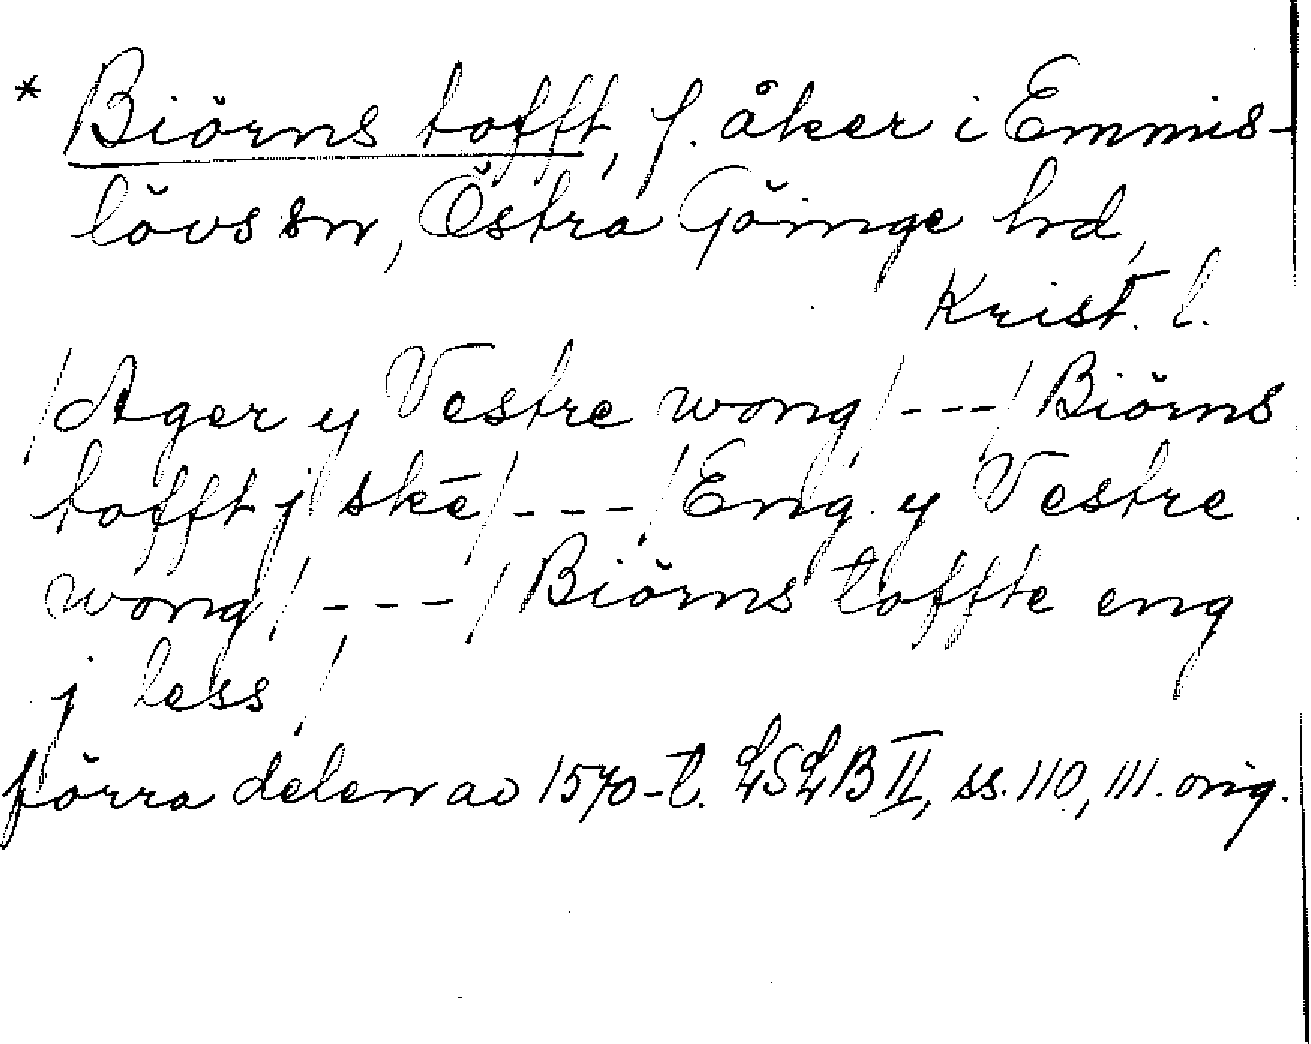 * Biörns tofft, f. åker i Emmis-
lövs sn, Östra Göinge hd,
Krist. l.
/Ager y Vestre wong/---/Biörns
tofft j skē/---/Eng y Vestre
wong/---/Biörns toffte eng
j less/
förra delen av 1570-t. LSLB II, ss. 110, 111. orig.